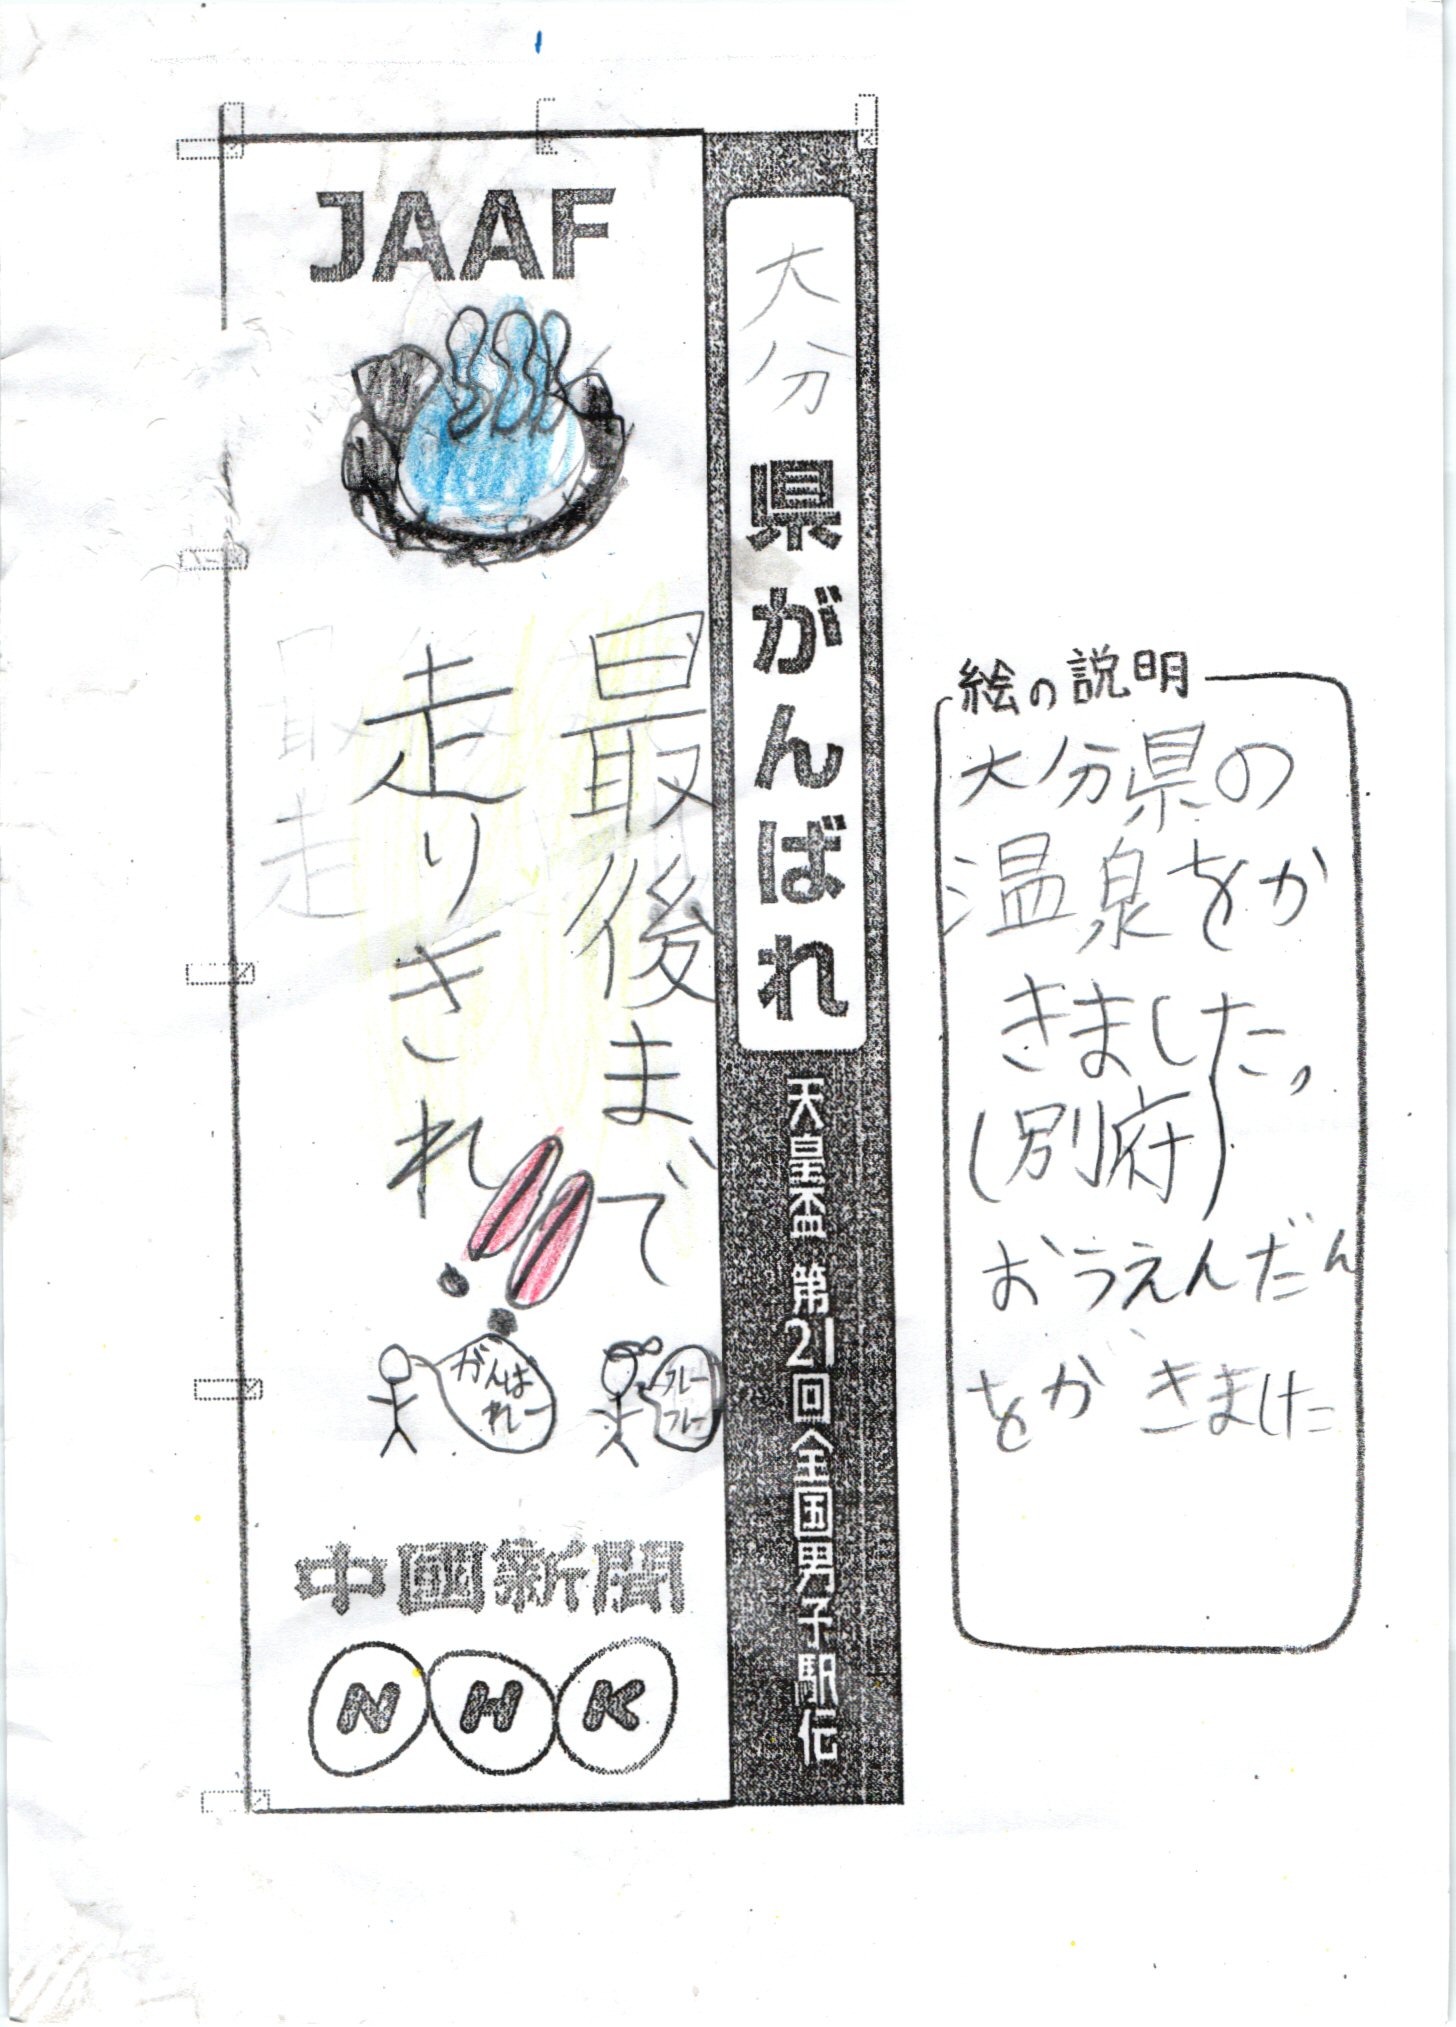 JAAF
大分県がんばれ
天皇盃 第21回全国男子駅伝
最後まで
走りきれ!!
がんば
れー
フレー
フレー
中國新聞
NHK
絵の説明
大分県の
温泉をか
きました。
(別府)
おうえんだん
をかきました